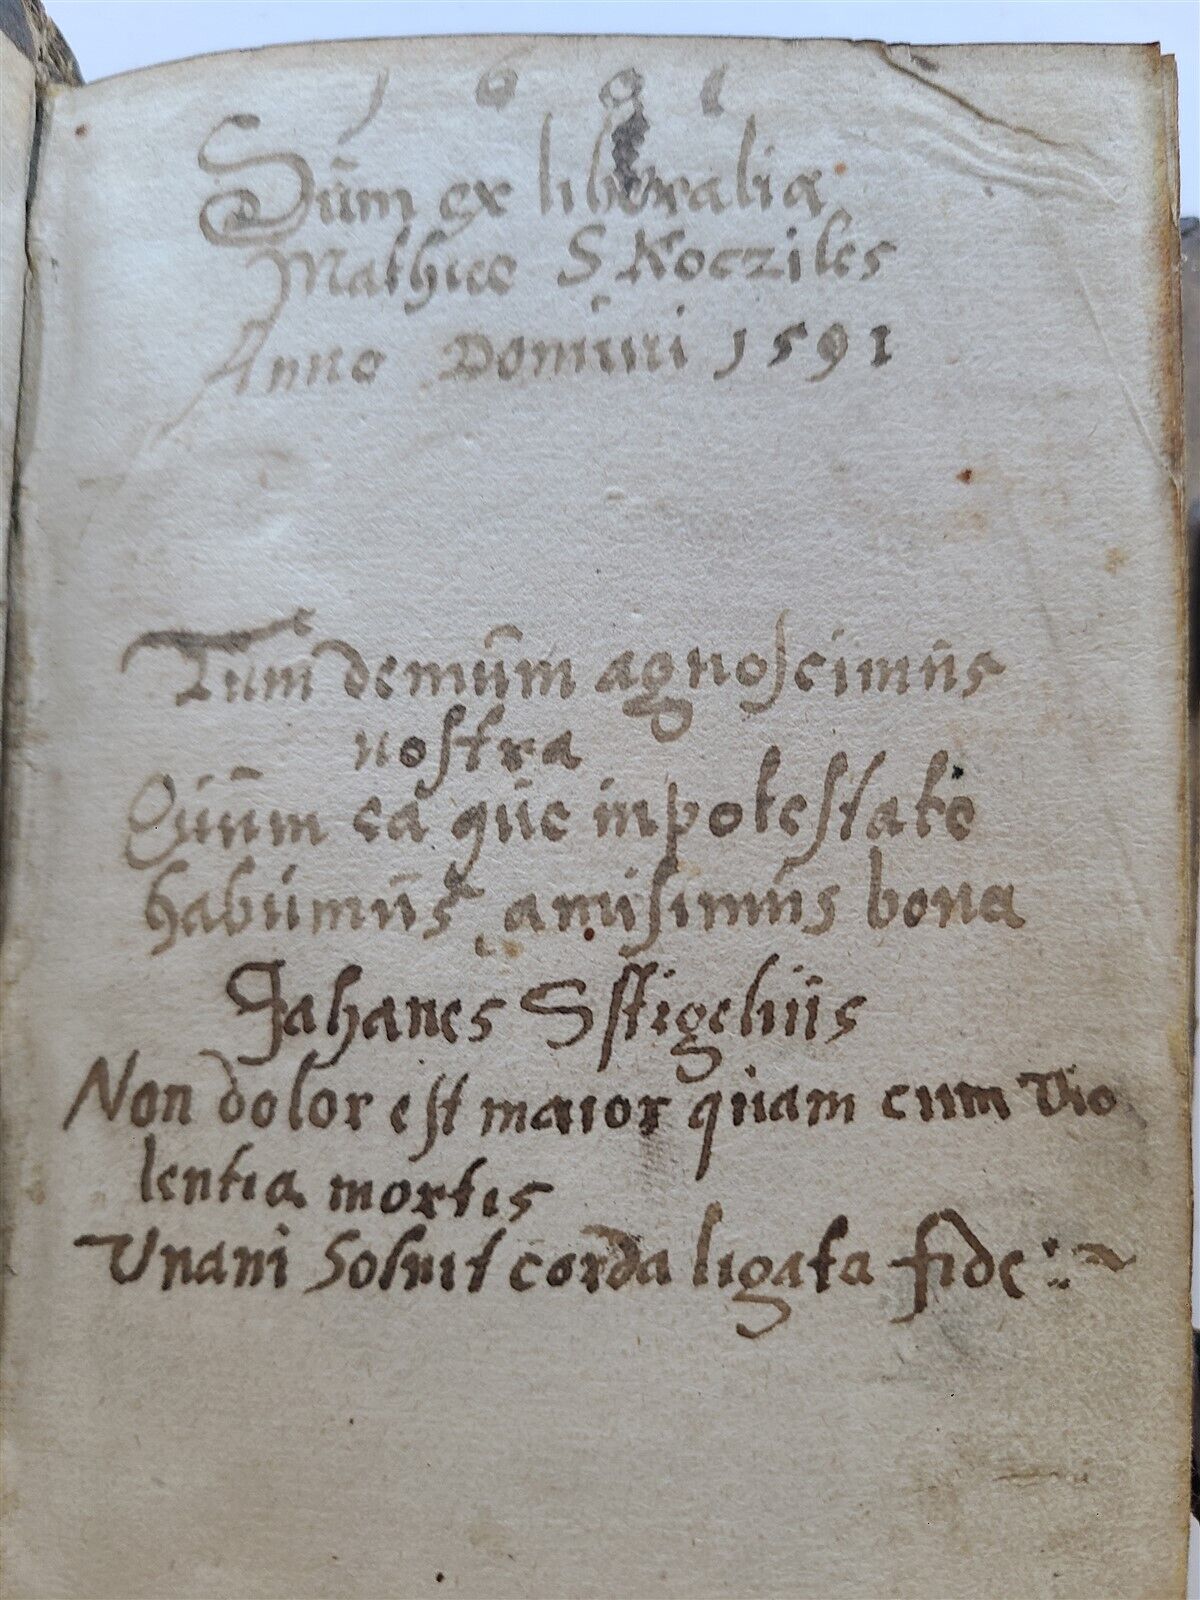 1681
Sum ex liberalia
Mathiee S Kocziles
Anno Domini 1591
Tum demum agnoscimus
nostra
Quum ea que in potestate
habuimus amisimus bona
Jahanes Sstigelius
Non dolor est maior quam cum vio
lentia mortis
Unani Soluit corda ligata fide